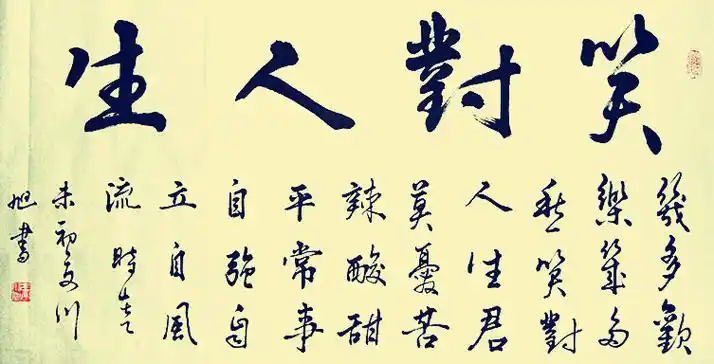 笑對人生
幾多歡
樂幾多
愁笑對
人生君
莫憂苦
辣酸甜
平常事
自強自
立自風
流 時在乙
未初夏川
旭書